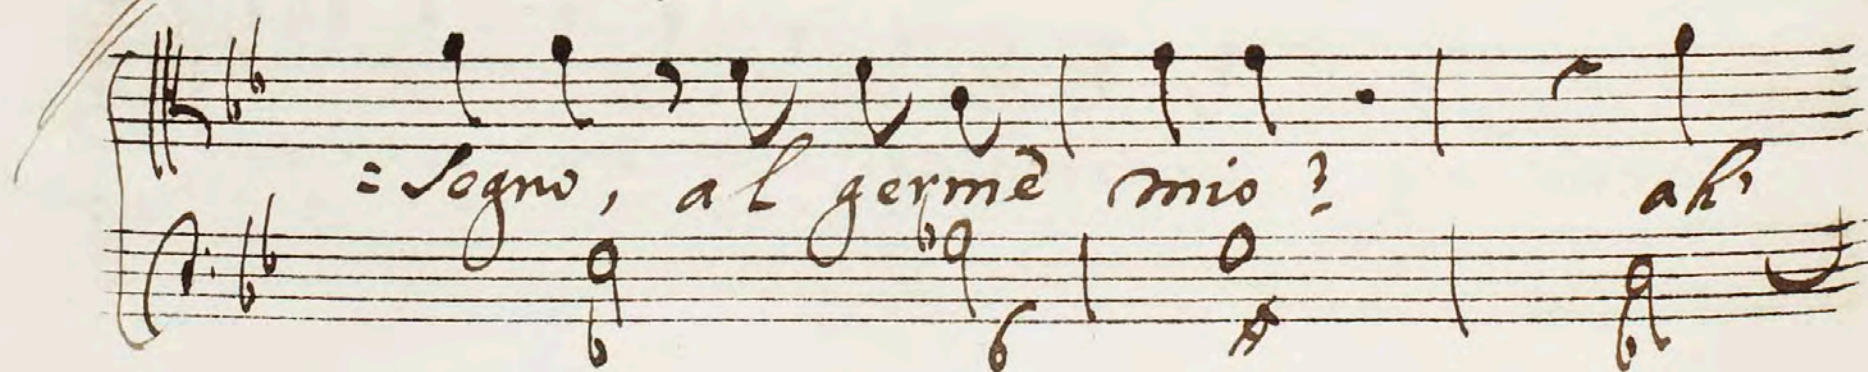 =sogno, al germe mio? ah,
6